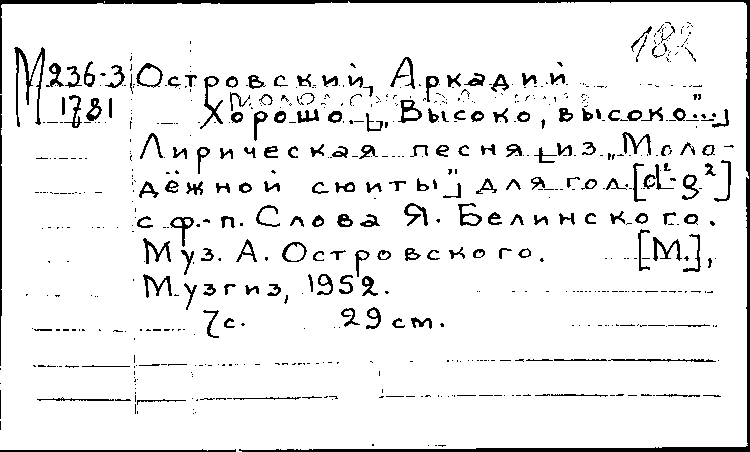 182
М 236-3 Островский, Аркадий
1781 Хорошо. [„Высоко, высоко..."]
Лирическая песня [из „Моло-
дёжной сюиты"] для гол. [d¹-g²]
с ф.-п. Слова Я. Белинского.
Муз. А. Островского. [М.],
Музгиз, 1952.
7 с. 29 см.